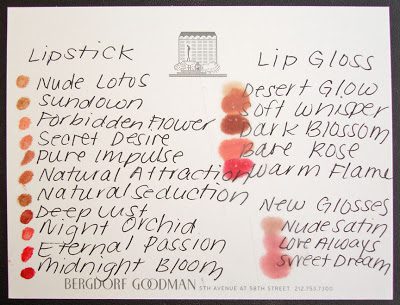 Lipstick
Nude Lotus
Sundown
Forbidden Flower
Secret Desire
Pure Impulse
Natural Attraction
Natural Seduction
Deep Lust
Night Orchid
Eternal Passion
Midnight Bloom
Lip Gloss
Desert Glow
Soft Whisper
Dark Blossom
Bare Rose
Warm Flame
New Glosses
Nude Satin
Love Always
Sweet Dream
BERGDORF GOODMAN 5TH AVENUE AT 58TH STREET 212.753.7300